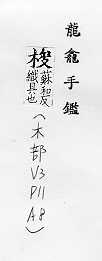 龍龕手鑑
梭
蘇和反
織具也
(木部
V3
P11
A8)